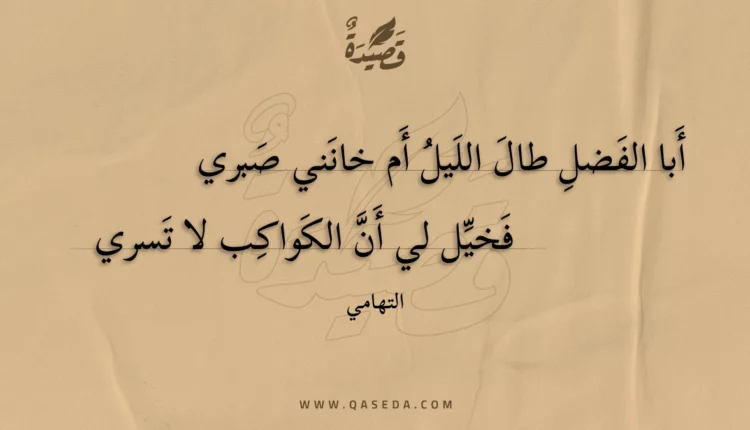 قَصِيْدَةٌ
أَبا الفَضلِ طالَ اللَيلُ أَم خانَني صَبري
فَخيِّل لي أَنَّ الكَواكِب لا تَسري
التهامي
WWW.QASEDA.COM